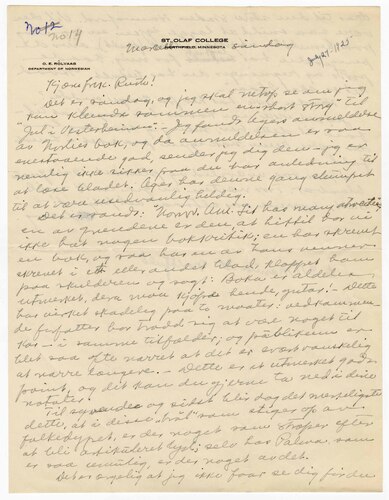 No 12
no 14
ST. OLAF COLLEGE
NORTHFIELD, MINNESOTA
søndag
O. E. ROLVAAG
DEPARTMENT OF NORWEGIAN
Kjære frk. Rude!
Det er søndag, og jeg skal netop se om jeg
kan sammen en short story til
"Jul i Vesterheimen". Jeg fandt Agers anmeldelse
av bok, og da anmeldelsen er saa
enestaaende god, sender jeg dig den, jeg er
nemlig ikke sikker paa du har anledning til
at læse bladet. Ager har denne gang slumpet
til at være
Det er sandt: Norw. Am. lit has many
en av grundene er den at hittil har vi
ikke hat nogen bokkritik; en har skrevet
en bok, og saa har en av hans venner
skrevet i et eller andet blad, klappet ham
paa skulderen og sagt: Boka er aldeles
utmerket, dere maa kjøpe hende, gutar! Dette
har virket skadelig paa to maater: vedkommen
de forfatter har trodd sig at være noget til
kar i samme tilfælder; og publikum er
blet saa ofte narret at det er svært vanskelig
at narre længere. Dette er et utmerket godt
point, og det kan du gjerne ta ned i dine
notater.
Til syvende og sidst blir dog det væsentligste
dette, at i disse "bøl" som stiger op av
folkedypet, er der noget som stræper efter
at bli artikuleret lyd; selv hos Palma, som
er saa umulig, er der noget av det.
Det er ergelig at jeg ikke faar se dig før du